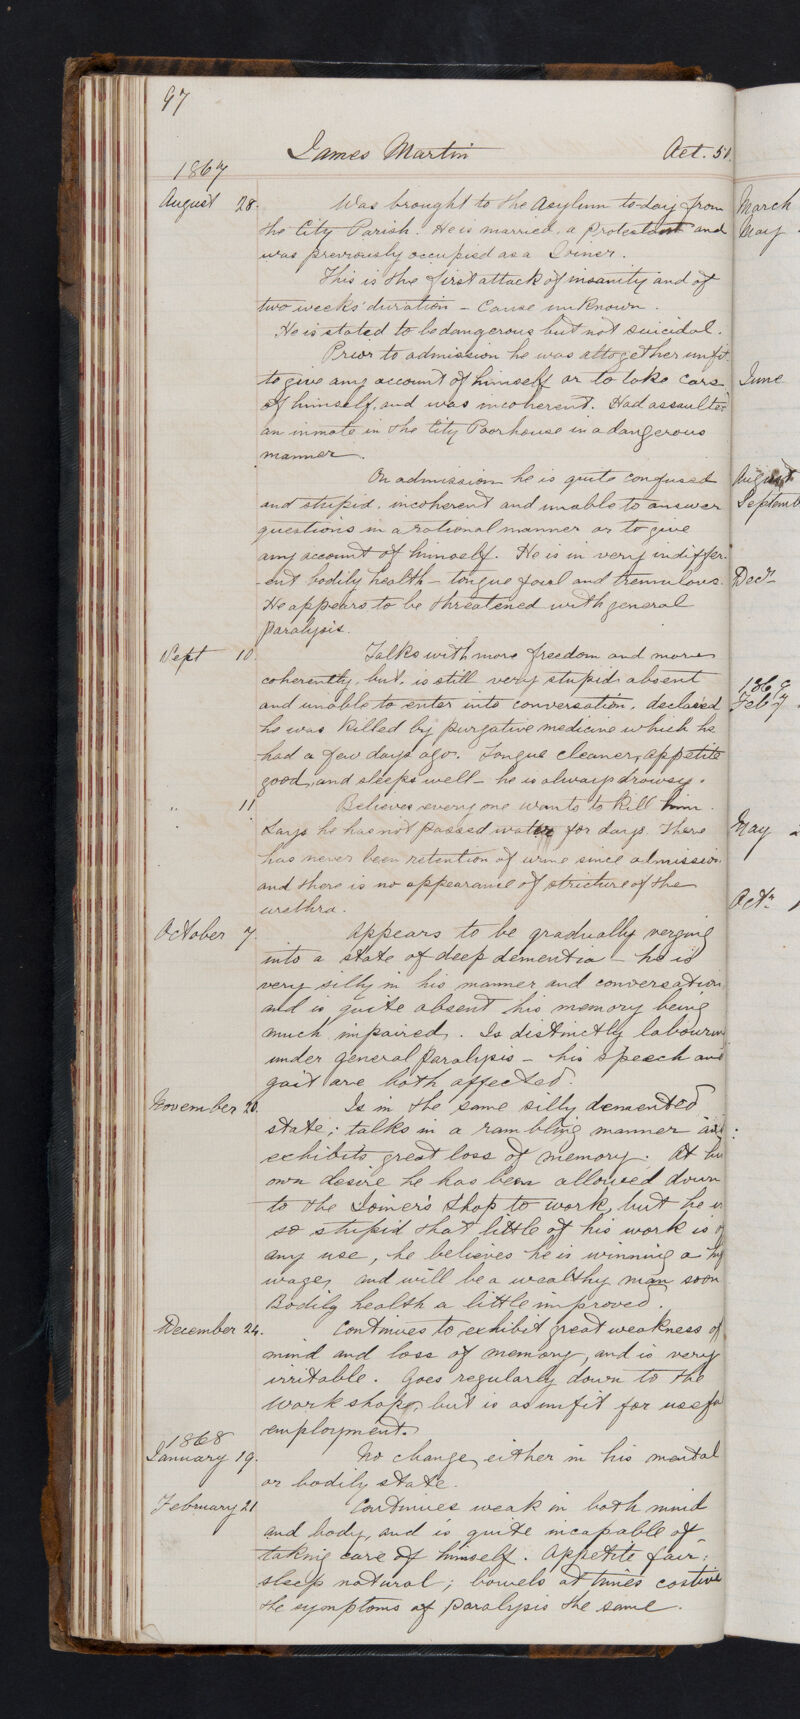 97
James Martin Aet. 51.
1867
August 28. Was brought to the Asylum to-day from
the City Parish. He is married, a Protestant and
was previously occupied as a Joiner.
This is the first attack of insanity and of
two weeks' duration - Cause unknown.
He is stated to be dangerous but not suicidal.
Prior to admission he was altogether unfit
to give any account of himself or to take care
of himself, and was incoherent. Had assaulted
an inmate in the City Poorhouse in a dangerous
manner.
On admission he is quite confused
and stupid, incoherent and unable to answer
questions in a rational manner or to give
any account of himself. He is in very indiffer-
-ent bodily health - tongue foul and tremulous.
He appears to be threatened with general
paralysis.
Sept 10. Talks with more freedom and more
coherently, but is still very stupid absent
and unable to enter into conversation, declared
he was killed by purgative medicine which he
had a few days ago. Tongue cleaner, appetite
good, and sleeps well - he is always drowsy.
" 11 Believes every one wants to kill him.
Says he has not passed water for days. There
has never been retention of urine since admission
and there is no appearance of stricture of the
urethra.
October 7. Appears to be gradually verging
into a state of deep dementia - he is
very silly in his manner and conversation
and is quite absent his memory being
much impaired. Is distinctly labouring
under general paralysis - his speech and
gait are both affected.
November 20. Is in the same silly demented
state; talks in a rambling manner and
exhibits great loss of memory. At his
own desire he has been allowed down
to the Joiner's shop to work, but he is
so stupid that little of his work is of
any use, he believes he is winning a big
wage, and will be a wealthy man soon
Bodily health a little improved.
December 24. Continues to exhibit great weakness of
mind and loss of memory, and is very
irritable. Goes regularly down to the
workshops, but is as unfit for useful
employment.
1868
January 19. No change, either in his mental
or bodily state.
February 21 Continues weak in both mind
and body, and is quite incapable of
taking care of himself. Appetite fair;
sleep natural; bowels at times costive
the symptoms of paralysis the same.
March
May
June
August
Septemb
Decr
1869
Feby
May
Octr